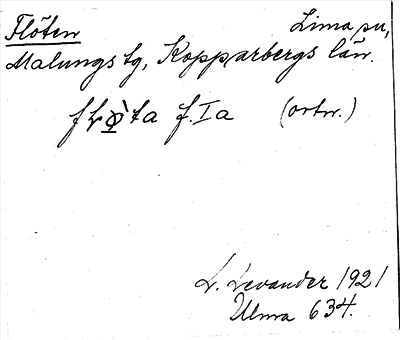 Flöten Lima sn,
Malungs tg, Kopparbergs län.
f. Ia (ortn.)
L. Levander 1921
Ulma 634.